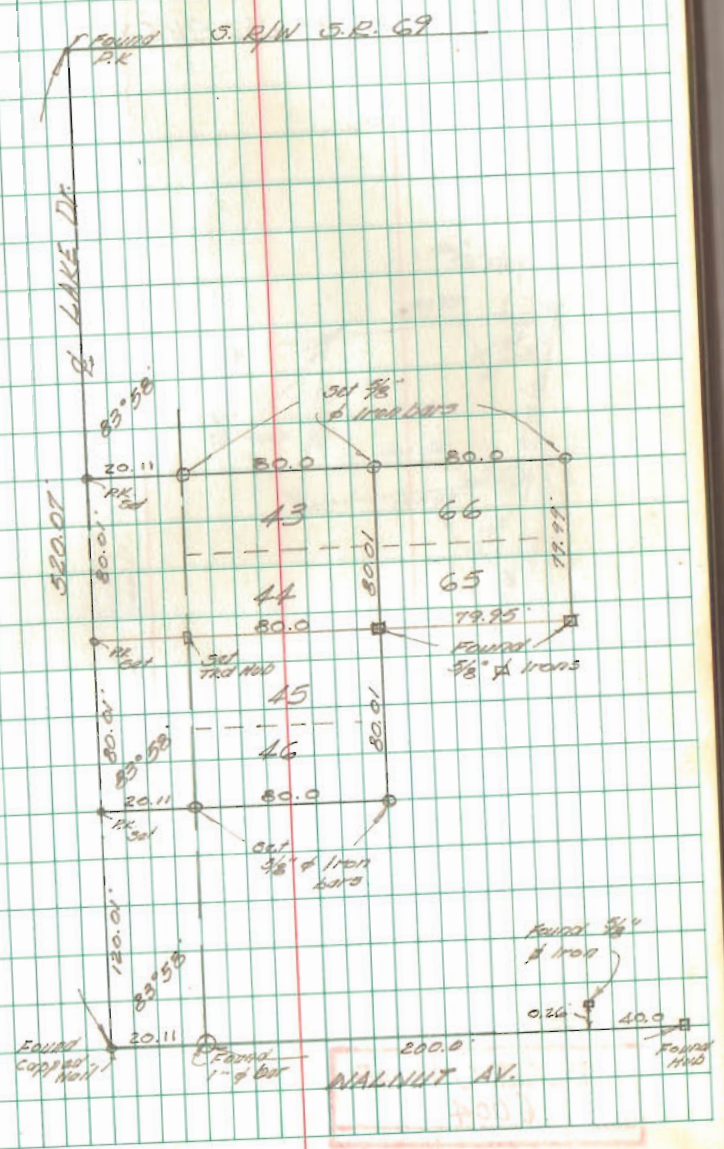 Found
P.K
S. R/W S.R. 69
℄ LAKE DR.
83°58'
Set 5/8"
ϕ Iron bars
20.11
80.0
80.0
P.K.
Set
43
66
520.07'
80.01'
80.01
79.97'
44
65
80.0
79.95
P.K.
Set
Set
Tk'd Hub
Found
5/8" ϕ Irons
45
80.01'
83°58'
46
80.01
20.11
80.0
P.K.
Set
Set
5/8" ϕ Iron
bars
120.01'
83°58'
Found 5/8"
ϕ Iron
0.26
40.0
Found
Capped
Nail
20.11
Found
1" ϕ bar
200.0
Found
Hub
WALNUT AV.